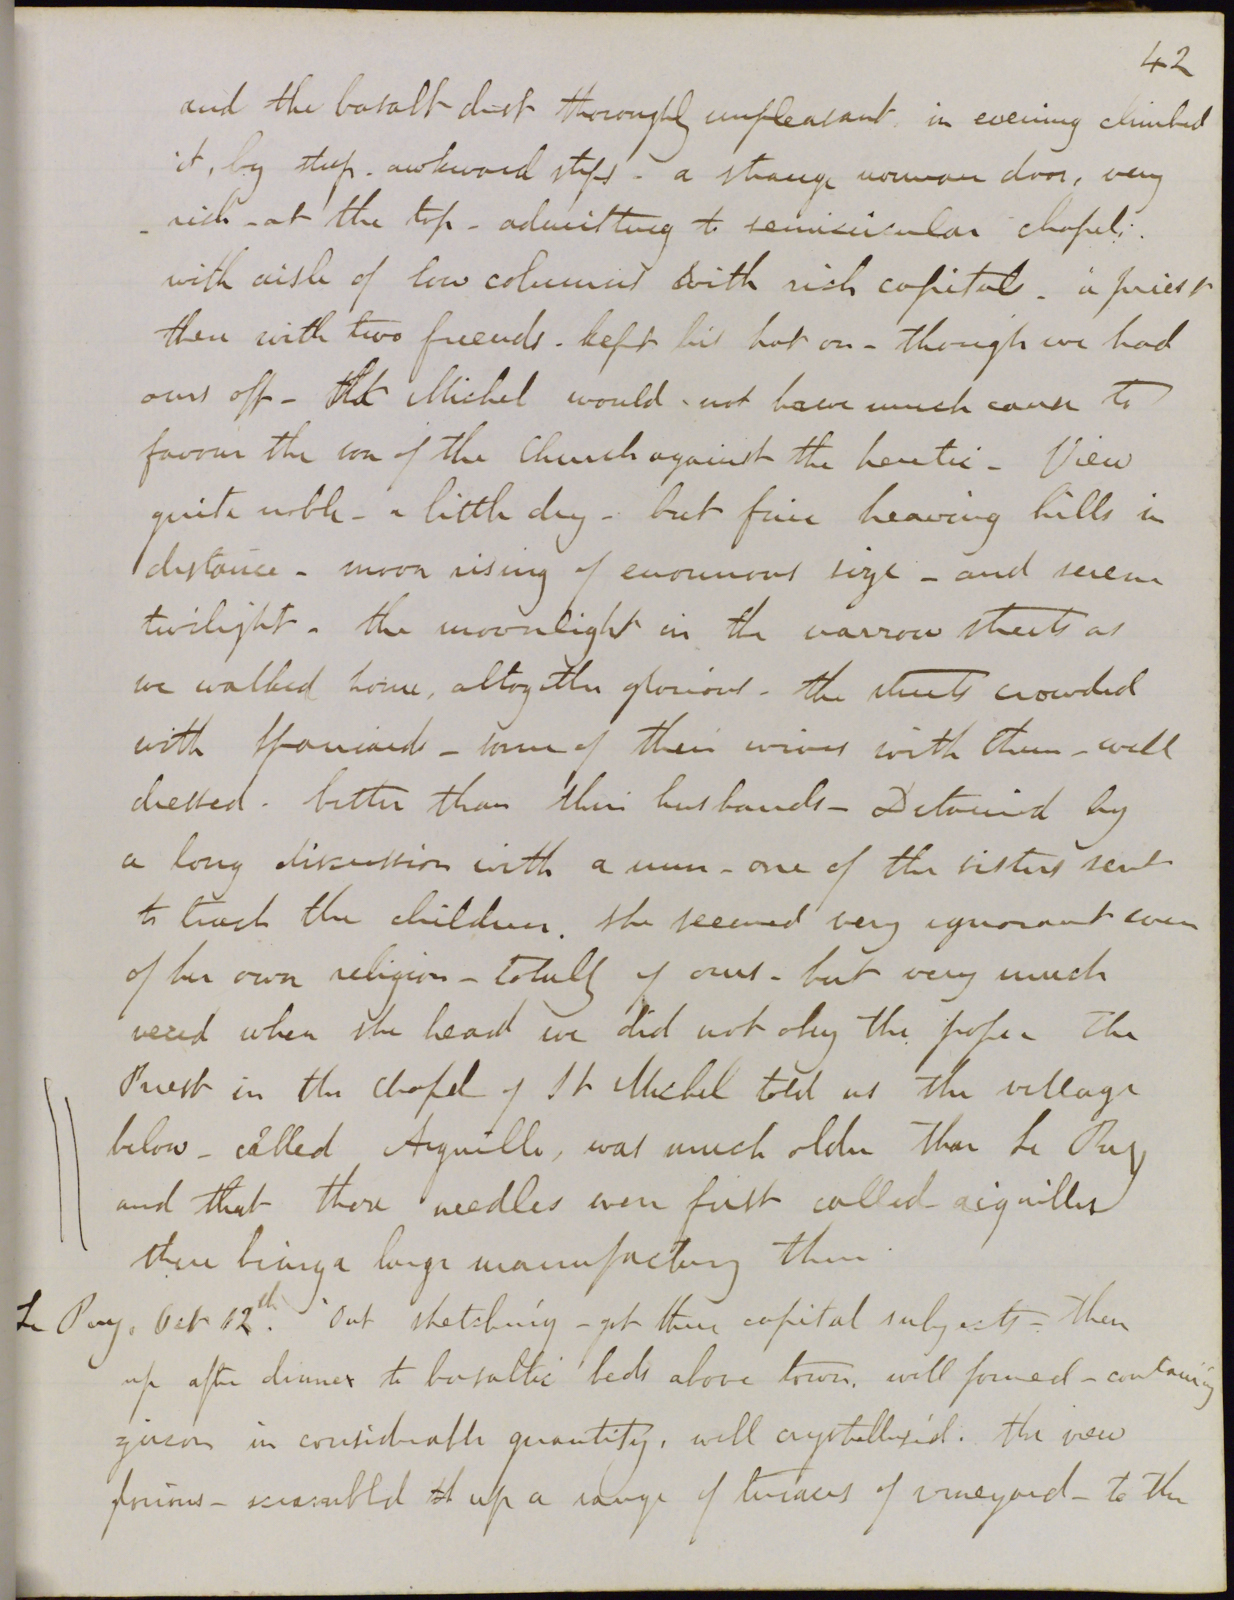 42
and the basalt dust thoroughly unpleasant. in evening climbed
it, by steep. awkward steps - a strange norman door, very
- rich - at the top - admitting to semicircular chapel;
with aisle of low columns with rich capitals - a priest
there with two friends - kept his hat on - though we had
ours off - St Michel would not have much cause to
favour the son of the Church against the heretic - View
quite noble - a little dry - but fine heaving hills in
distance - moon rising of enormous size - and serene
twilight - the moonlight in the narrow streets as
we walked home, altogether glorious - the streets crowded
with Spaniards - some of their wives with them - well
dressed - better than their husbands - Detained by
a long discussion with a nun - one of the sisters sent
to teach the children. she seemed very ignorant even
of her own religion - totally of ours - but very much
vexed when she heard we did not obey the pope. The
Priest in the chapel of St Michel told us the village
below - called Aiguille, was much older than Le Puy
and that there needles were first called aiguilles
there being a large manufactory there.
Le Puy, Oct 12th. Out sketching - got three capital subjects - then
up after dinner to basaltic beds above town. well formed - containing
zircon in considerable quantity, well crystallized. the view
glorious - scrambled up a range of terraces of vineyard - to the